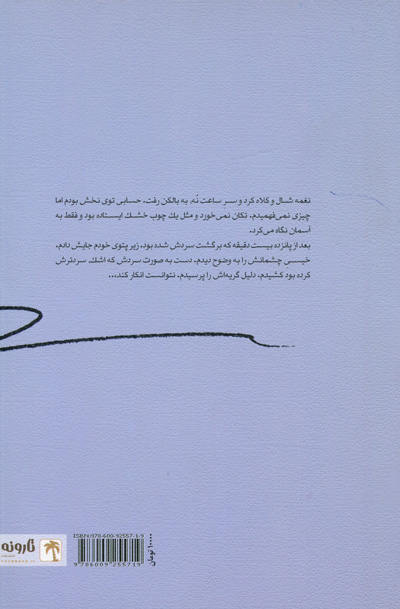 نغمه شال و کلاه کرد و سرِ ساعت نُه به بالکن رفت، حسابی توی نخش بودم اما
چیزی نمی‌فهمیدم، تکان نمی‌خورد و مثل یك چوب خشك ایستاده بود و فقط به
آسمان نگاه می‌کرد.
بعد از پانزده بیست دقیقه که برگشت سردش شده بود، زیر پتوی خودم جایش دادم،
خیسی چشمانش را به وضوح دیدم، دست به صورت سردش که اشك، سردترش
کرده بود کشیدم، دلیل گریه‌اش را پرسیدم، نتوانست انکار کند،...
ISBN: 978-600-92557-1-9
9786009255719
۱۰۰۰۰ تومان
تارونه